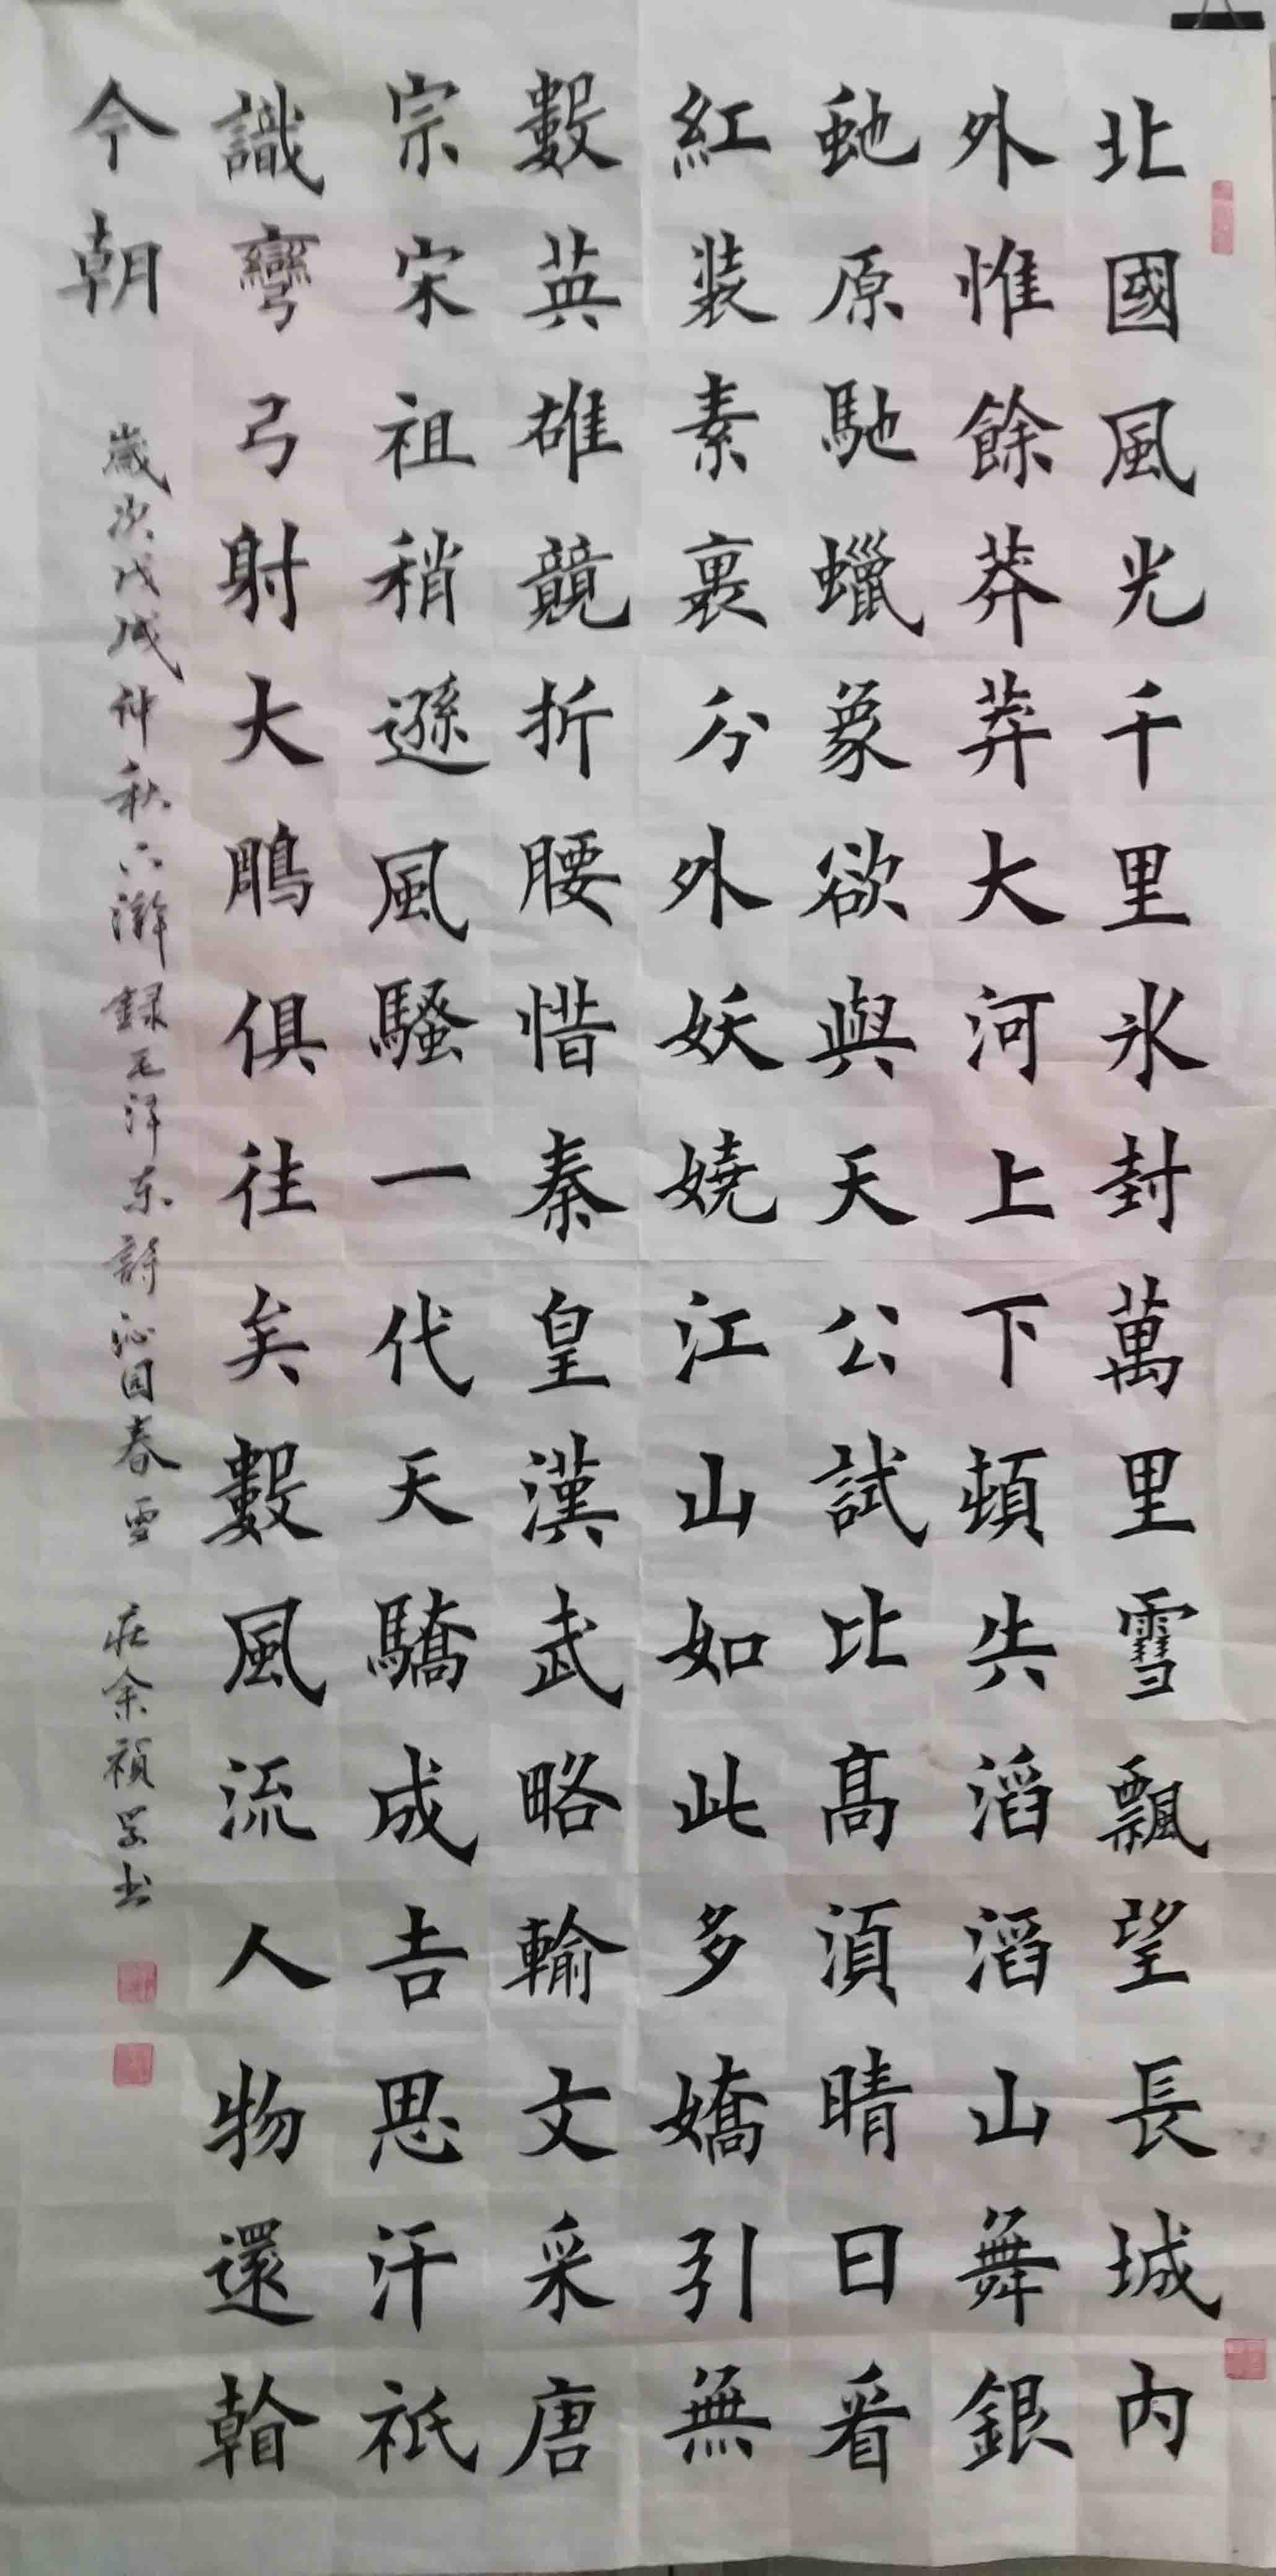 北國風光千里氷封萬里雪飄望長城内
外惟餘莽莽大河上下頓失滔滔山舞銀
虵原馳蠟象欲與天公試比髙須晴日看
紅裝素裹分外妖嬈江山如此多嬌引無
數英雄競折腰惜秦皇漢武略輸文采唐
宗宋祖稍遜風騷一代天驕成吉思汗祇
識彎弓射大鵰俱往矣數風流人物還看
今朝
歲次戊戌仲秋六澣録毛泽东詩沁园春雪 余禎学书